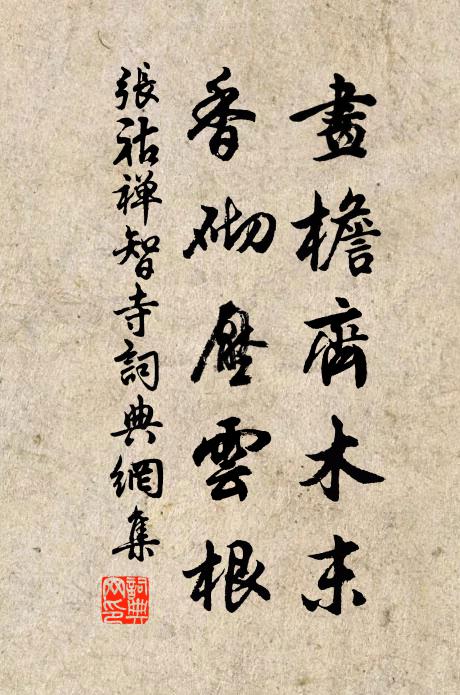 畫檐齊木末
香砌壓雲根
張祜禅智寺詞典網集
詞典网印